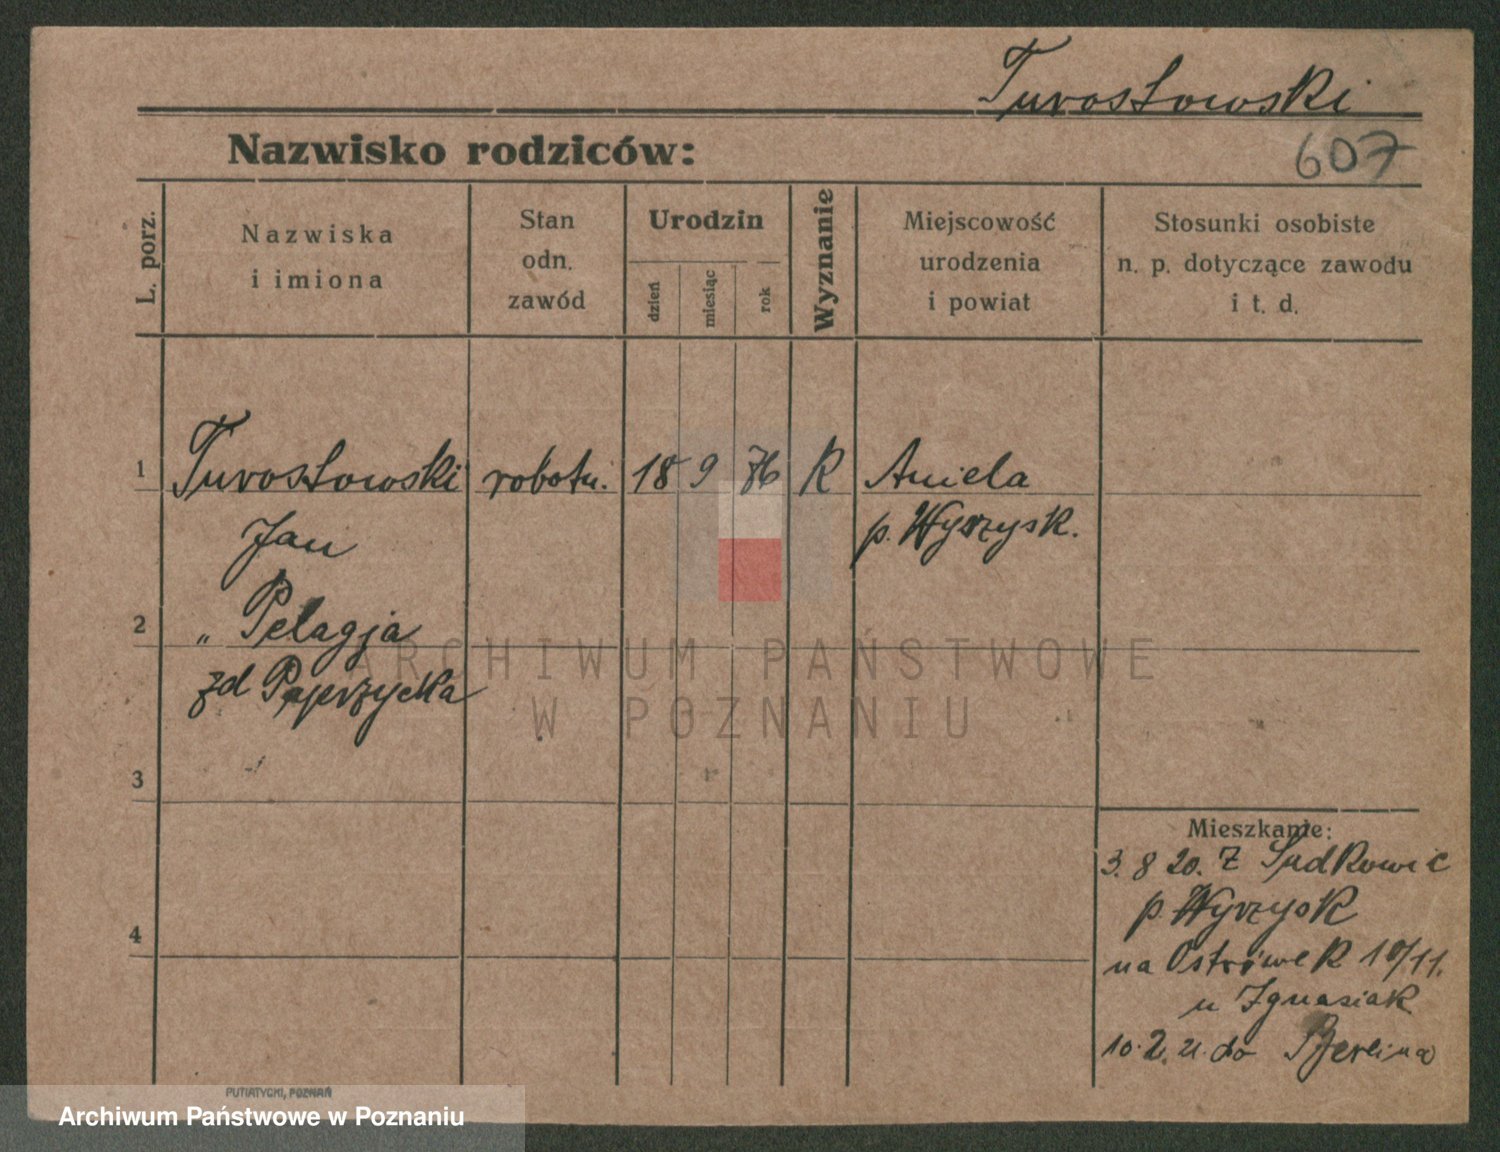 Turosłowski
Nazwisko rodziców:
607
L. porz.
Nazwiska
i imiona
Stan
odn.
zawód
Urodzin
dzień
miesiąc
rok
Wyznanie
Miejscowość
urodzenia
i powiat
Stosunki osobiste
n. p. dotyczące zawodu
i t. d.
1 Turosłowski robotn. 18 9 76 K Aniela
Jan p. Wyrzysk.
2 „ Pelagja
zd Paprzycka
ARCHIWUM PAŃSTWOWE
W POZNANIU
3
4
Mieszkanie:
3. 8 20. z Sadkowic
p. Wyrzysk
na Ostrówek 10/11.
u Ignasiak
10. 2. 21. do Berlina
PUTIATYCKI, POZNAŃ
Archiwum Państwowe w Poznaniu